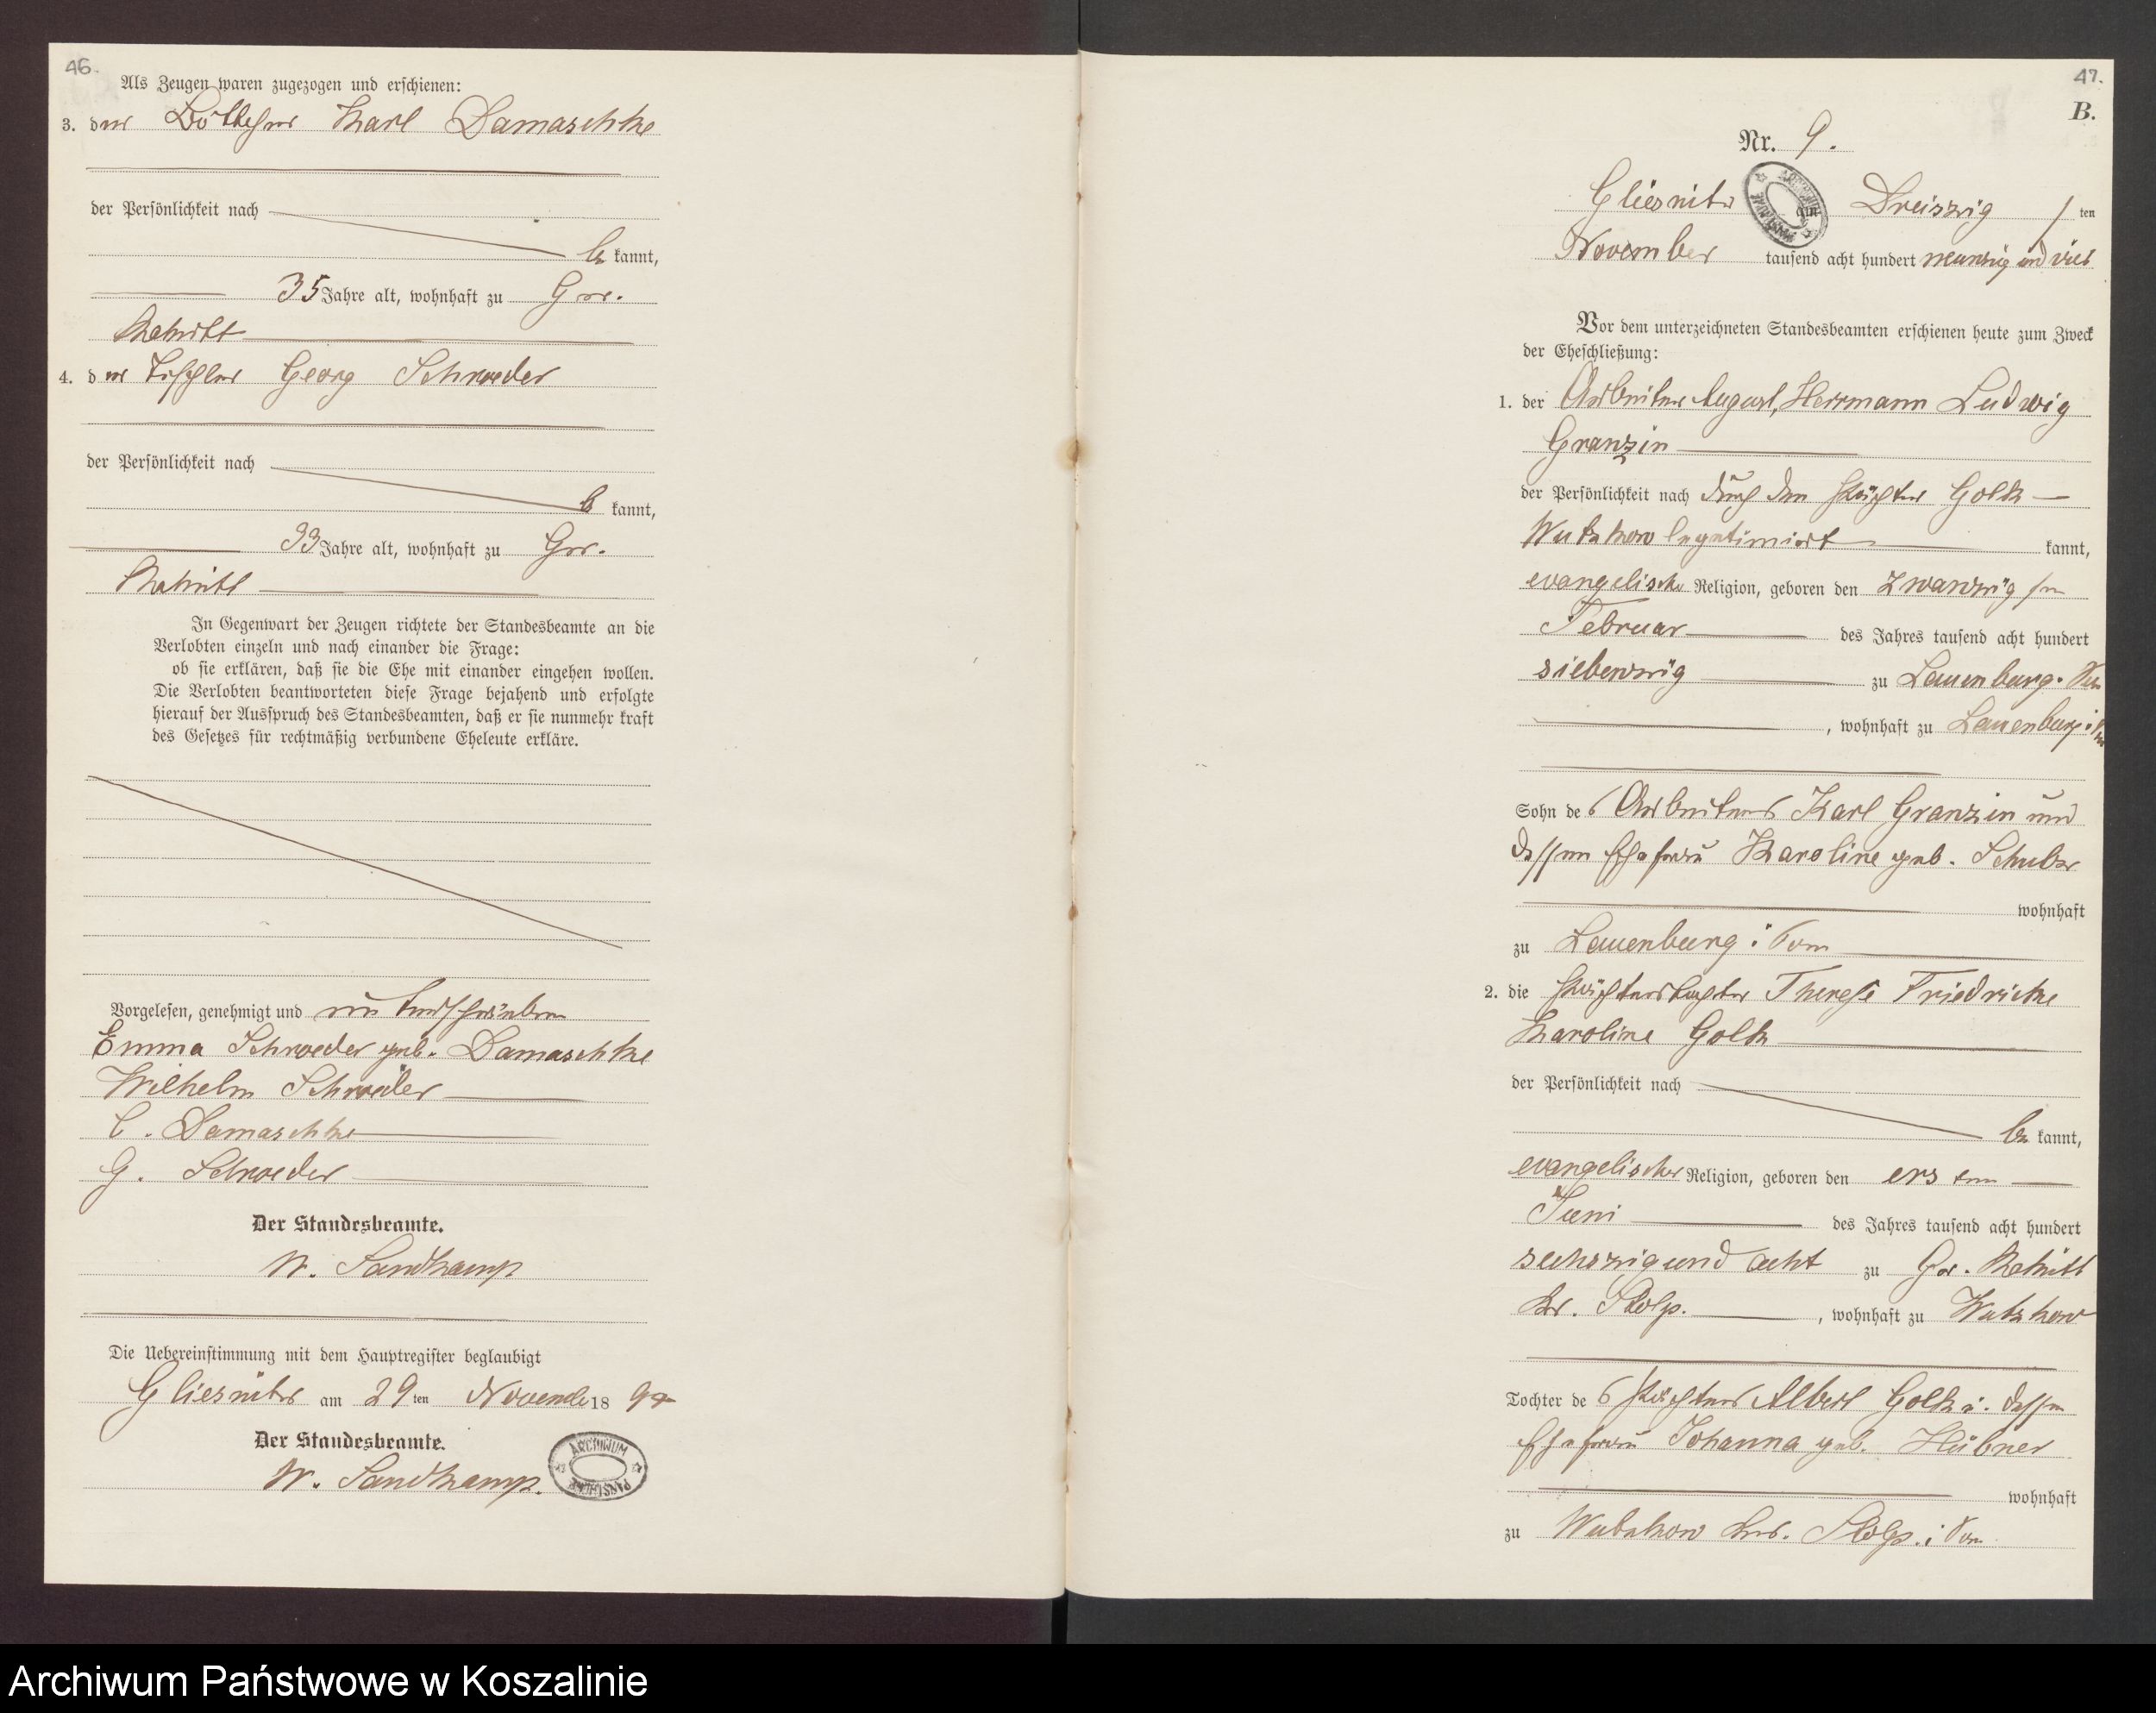 46.
Als Zeugen waren zugezogen und erschienen:
3. der Böttcher Karl Damaschke
der Persönlichkeit nach
be kannt,
35 Jahre alt, wohnhaft zu Gr.
Rakitt
4. der Tischler Georg Schroeder
der Persönlichkeit nach
be kannt,
33 Jahre alt, wohnhaft zu Gr.
Rakitt
In Gegenwart der Zeugen richtete der Standesbeamte an die
Verlobten einzeln und nach einander die Frage:
ob sie erklären, daß sie die Ehe mit einander eingehen wollen.
Die Verlobten beantworteten diese Frage bejahend und erfolgte
hierauf der Ausspruch des Standesbeamten, daß er sie nunmehr kraft
des Gesetzes für rechtmäßig verbundene Eheleute erkläre.
Vorgelesen, genehmigt und unterschrieben
Emma Schroeder geb. Damaschke
Wilhelm Schroeder
C. Damaschke
G. Schroeder
Der Standesbeamte.
W. Sandkamp
Die Uebereinstimmung mit dem Hauptregister beglaubigt
Gliesnitz am 29 ten November 18 94
Der Standesbeamte.
W. Sandkamp.
ARCHIWUM PAŃSTWOWE
47.
B.
Nr. 9.
Gliesnitz am Dreiszig / ten
November tausend acht hundert neunzig und vier
ARCHIWUM PAŃSTWOWE
Vor dem unterzeichneten Standesbeamten erschienen heute zum Zweck
der Eheschließung:
1. der Arbeiter August, Herrmann Ludwig
Granzin
der Persönlichkeit nach durch den Pächter Golk
Wutzkow legitimiert kannt,
evangelischer Religion, geboren den zwanzig/ten
Februar des Jahres tausend acht hundert
siebenzig zu Lauenburg. Pom
, wohnhaft zu Lauenburg i. Pom
Sohn des Arbeiters Karl Granzin und
dessen Ehefrau Karoline geb.
wohnhaft
zu Lauenburg i Pom
2. die Pächterstochter Therese Friedricke
Karoline Golk
der Persönlichkeit nach
be kannt,
evangelischer Religion, geboren den ersten
Juni des Jahres tausend acht hundert
sechszig und acht zu Gr. Rakitt
Kr. Stolp. , wohnhaft zu Wutzkow
Tochter des Pächters Albert Golk u. dessen
Ehefrau Johanna geb. Hübner
wohnhaft
zu Wutzkow Krs. Stolp. i Pom
Archiwum Państwowe w Koszalinie